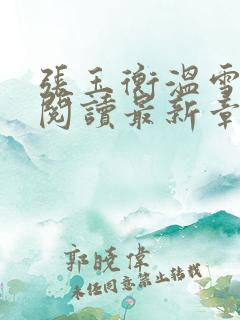 張玉衡溫雪
閱讀最新章
郭曉偉
未经同意禁止转载